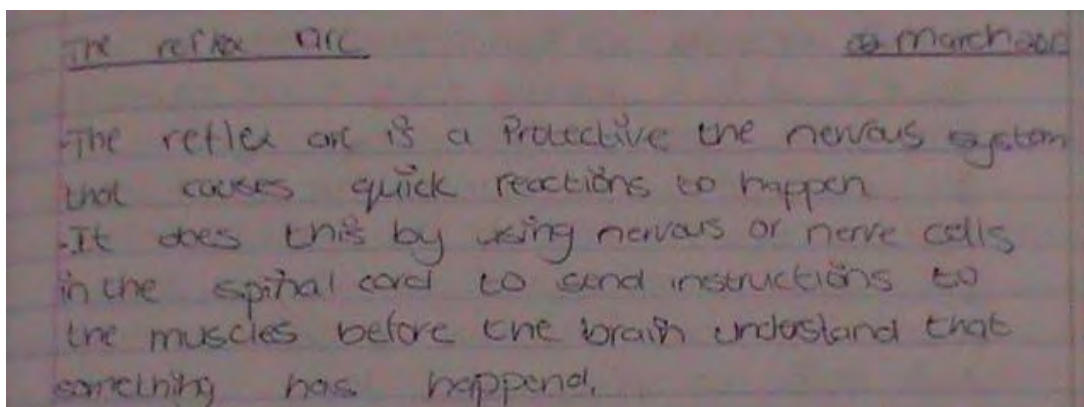 The reflex arc
march
.The reflex arc is a Protective the nervous system
that causes quick reactions to happen
.It does this by using nervous or nerve cells
in the spinal cord to send instructions to
the muscles before the brain understand that
something has happend.